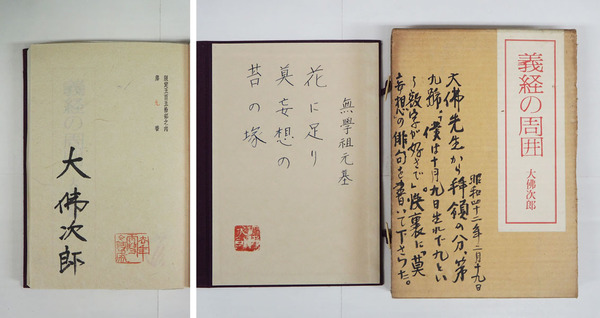 限定五百五拾部之内
第 九 番
大佛次郎
無學祖元墓
花に足り
莫妄想の
苔の塚
義経の周囲
大佛次郎
昭和四十二年二月十九日
大佛先生から拝領の分、第
九號「僕は十月九日生れで九とい
う数字が好きで」帙裏に「莫
妄想の俳句を書いて下さった。